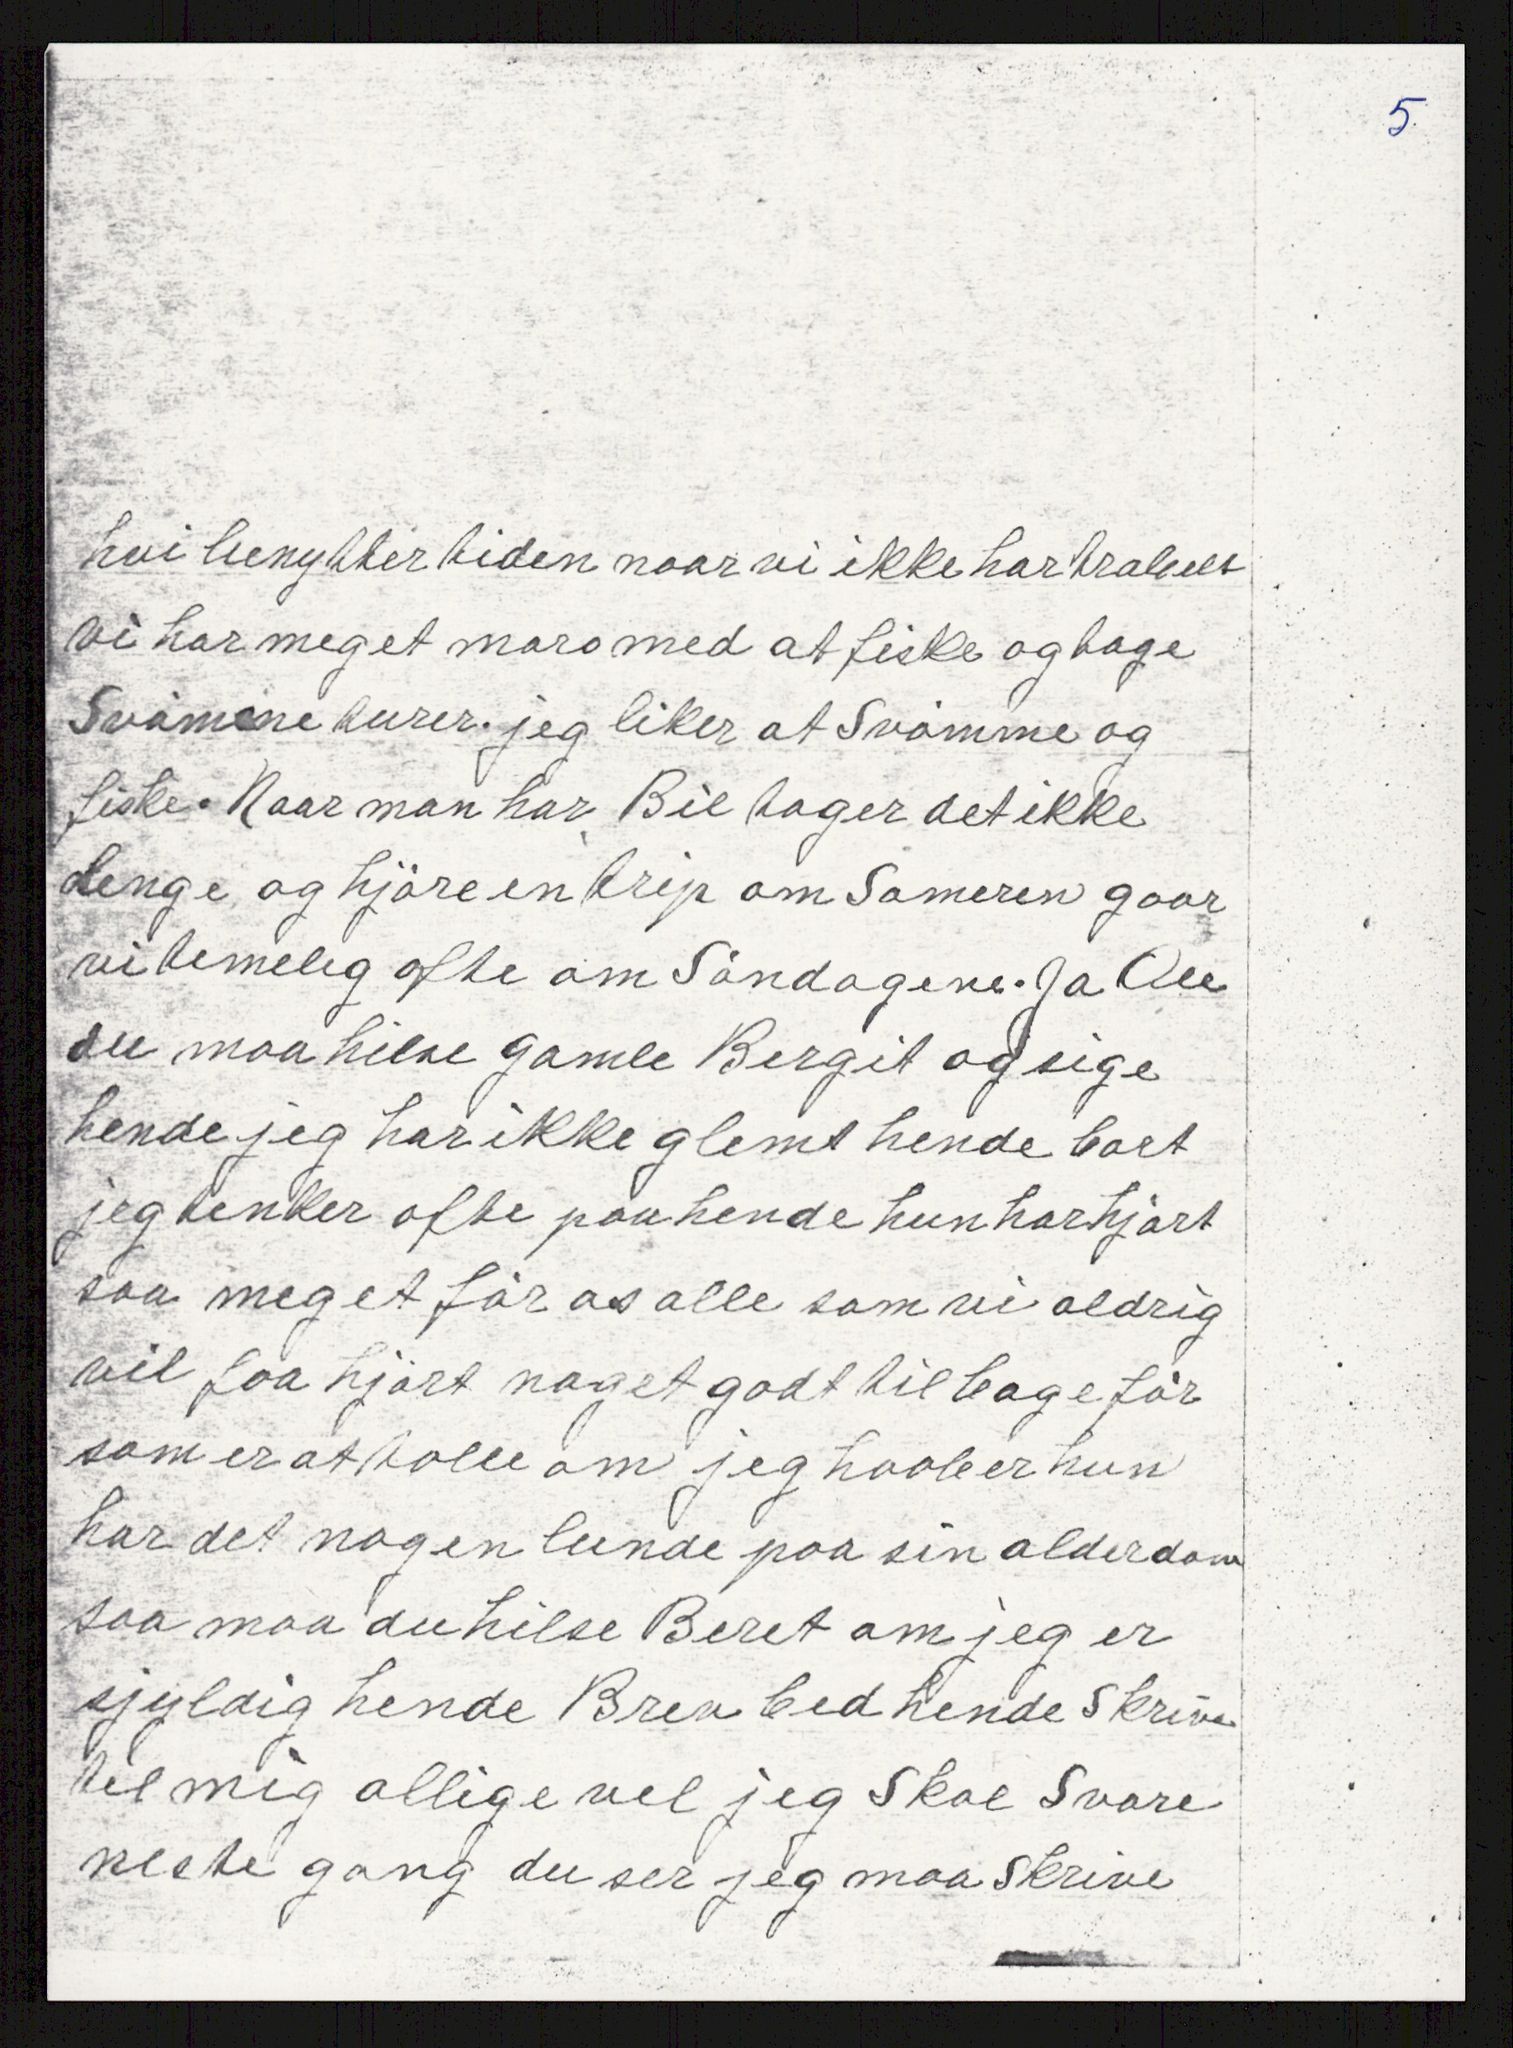 5
hvi benytter tiden naar vi ikke har trabelt
vi har meget moro med at fiske og tage
Svömme turer. jeg liker at Svömme og
fiske. Naar man har Bil tager det ikke
lenge og hjöre en trip om Someren gaar
vi temelig ofte om Söndagene. Ja Ole
du maa hilse gamle Bergit og sige
hende jeg har ikke glemt hende bort
jeg tenker ofte paa hende hun har hjort
saa meget för os alle som vi aldrig
vil faa hjört noget godt tilbage för
som er at talle om jeg haaber hun
har det nogenlunde paa sin alderdom
saa maa du hilse Beret om jeg er
sjyldig hende Brev bed hende Skrive
til mig allige vel jeg Skal Svare
neste gang du ser jeg maa Skrive